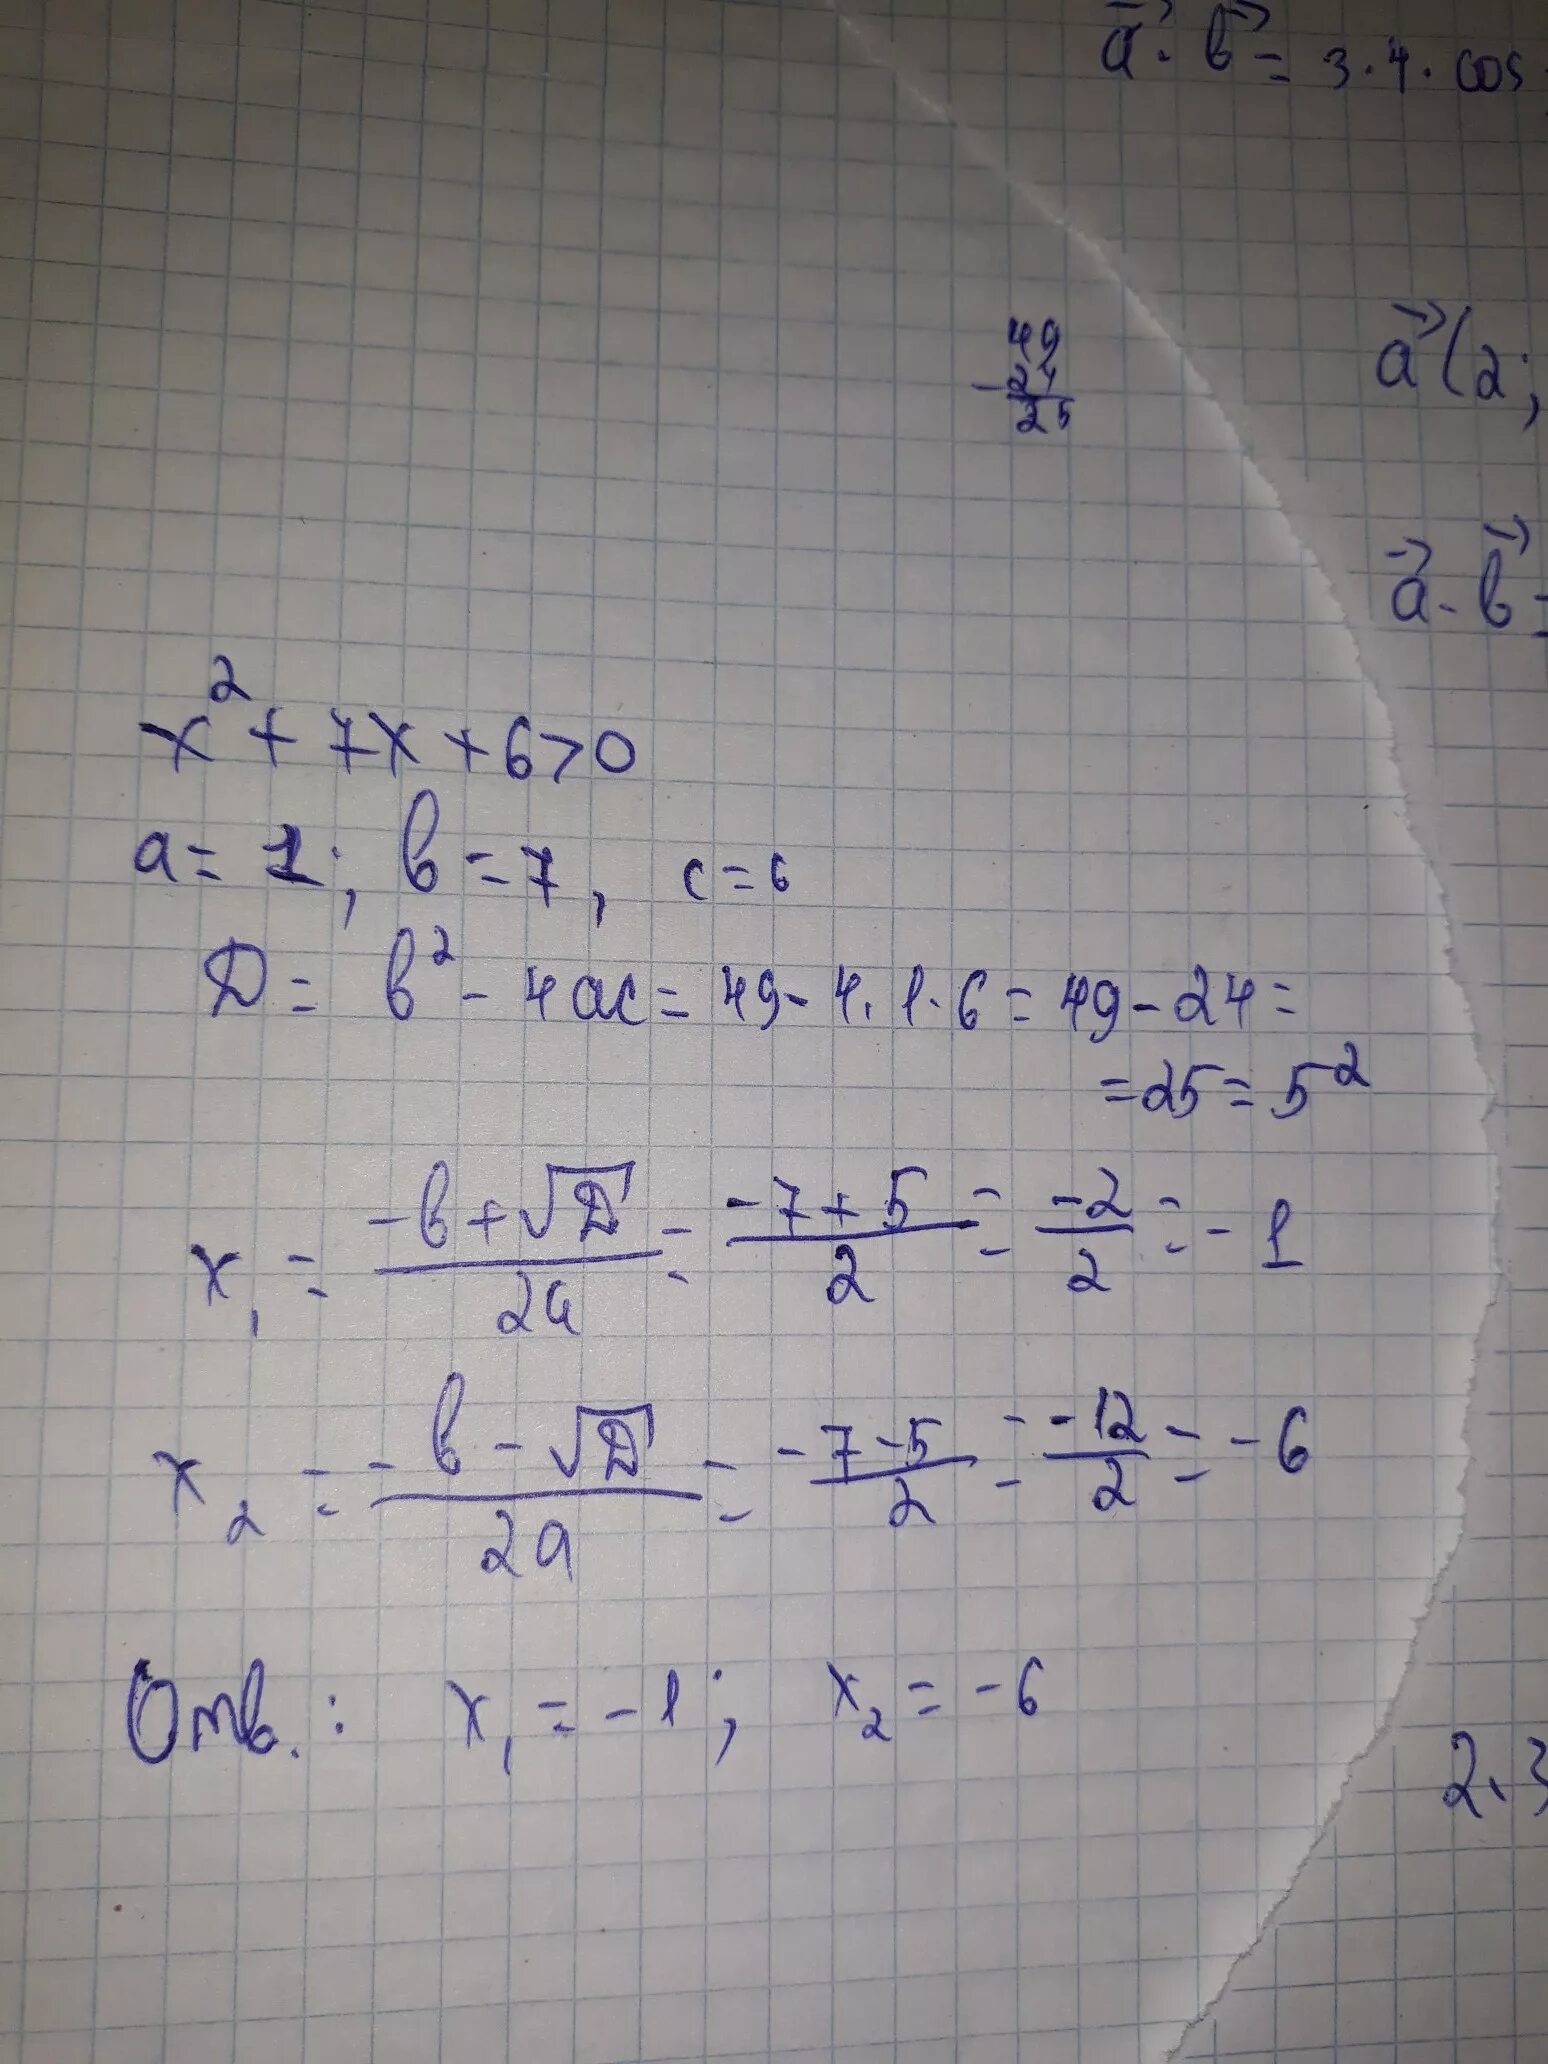 a⃗ · b⃗ = 3 · 4 · cos
49
- 24
25
a⃗ (2;
a⃗ · b⃗ =
x² + 7x + 6 > 0
a = 1; b = 7, c = 6
D = b² - 4ac = 49 - 4 · 1 · 6 = 49 - 24 =
= 25 = 5²
x₁ = (-b + √D)/2a = (-7 + 5)/2 = -2/2 = -1
x₂ = (-b - √D)/2a = (-7 - 5)/2 = -12/2 = -6
Отв.: x₁ = -1; x₂ = -6
2 · 3